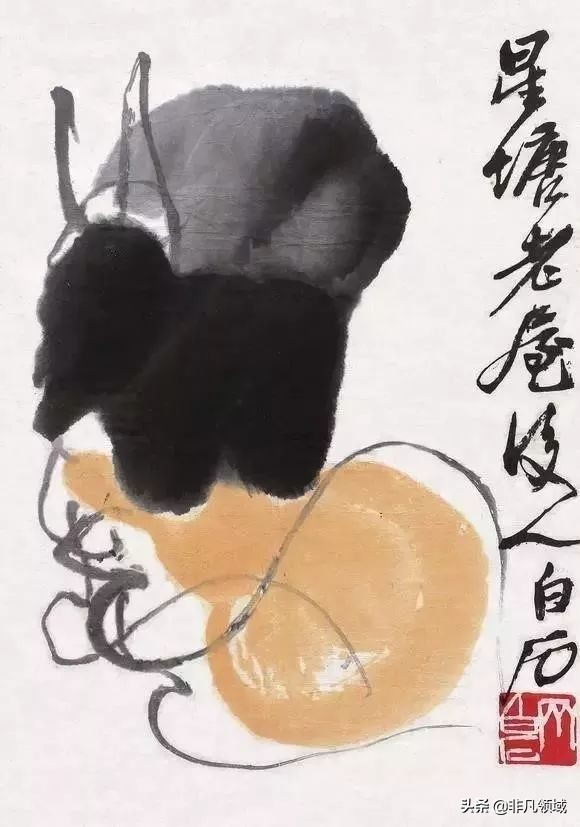 星塘老屋後人白石
头条 @非凡领域